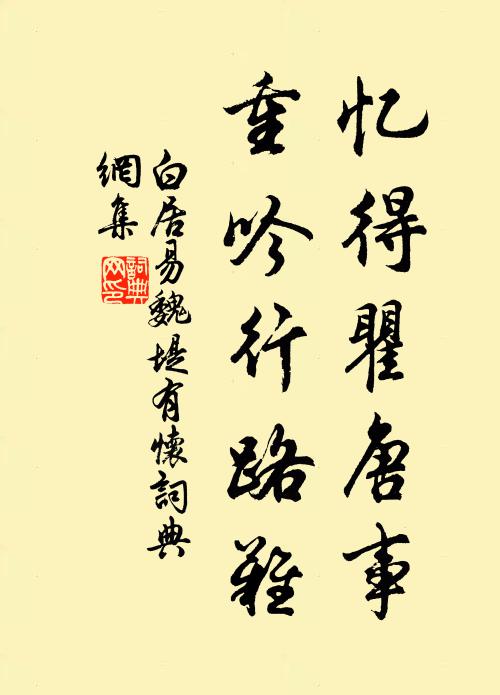 忆得瞿唐事
重吟行路难
白居易魏堤有懷詞典
網集
詞典
网印